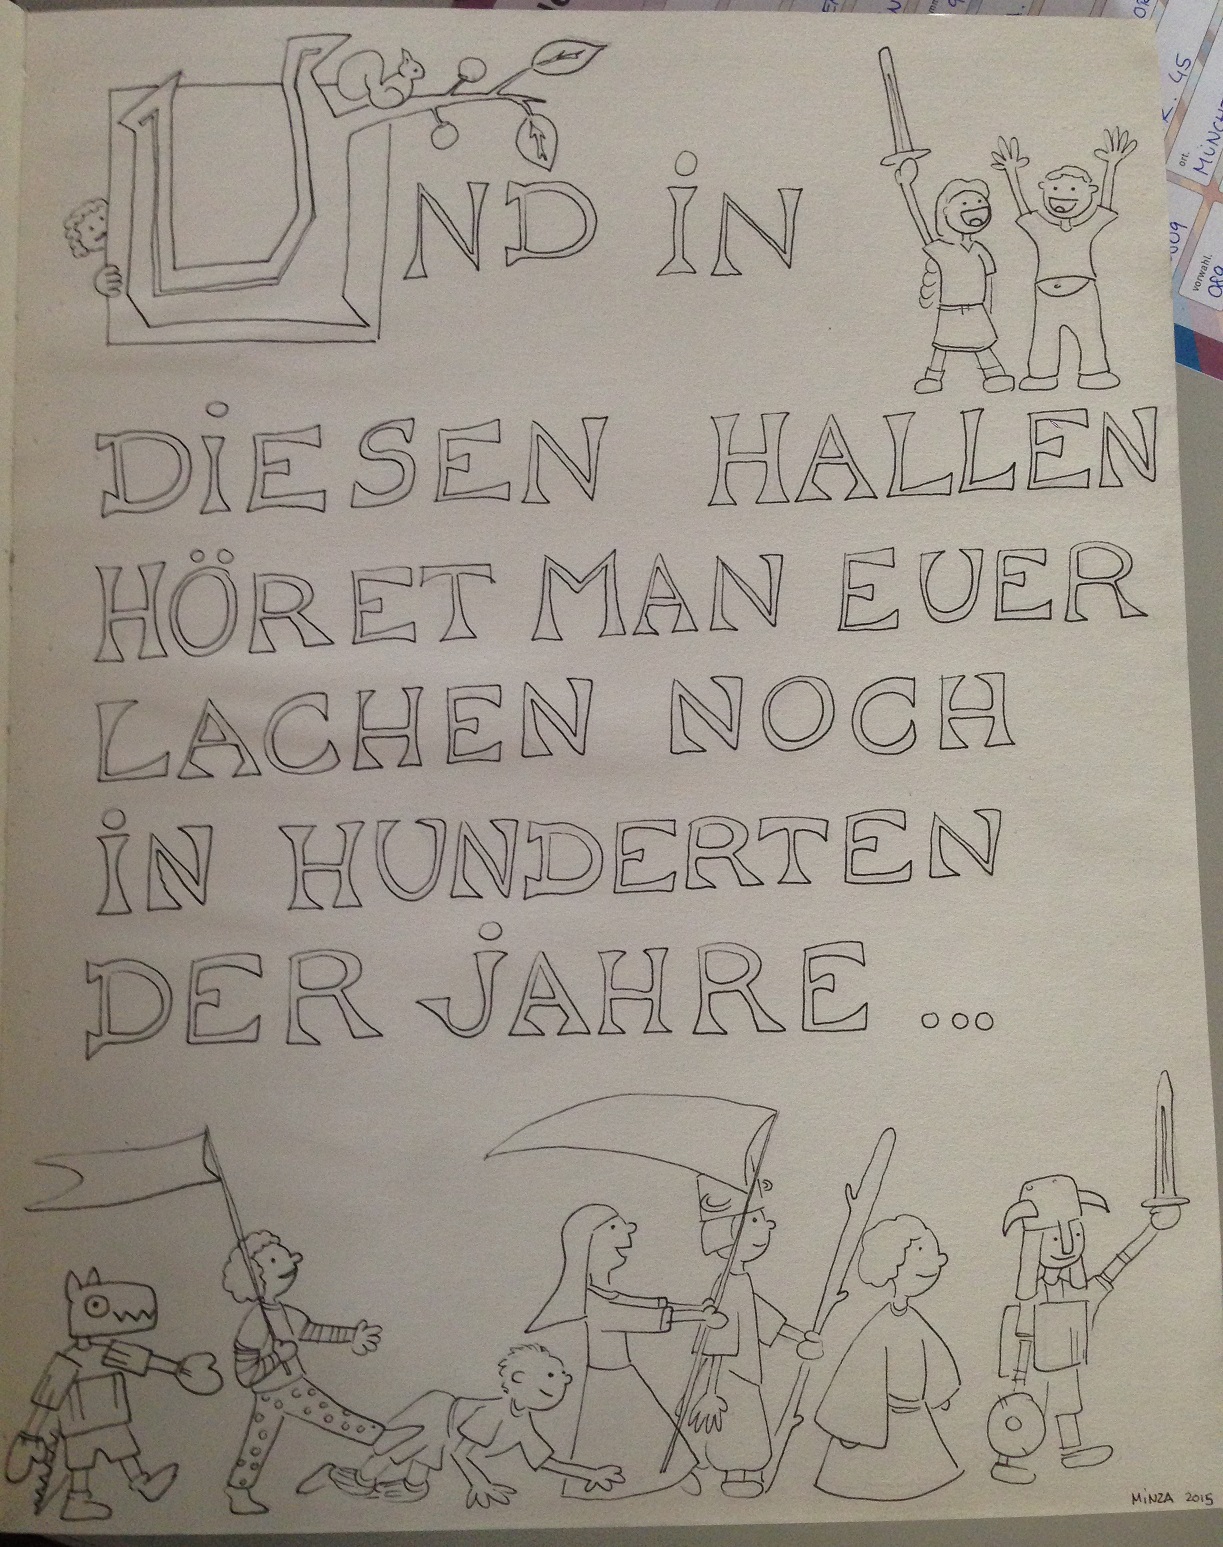 UND IN
DIESEN HALLEN
HÖRET MAN EUER
LACHEN NOCH
IN HUNDERTEN
DER JAHRE ...
MINZA 2015
K. 45
ort.
vorwahl.
089